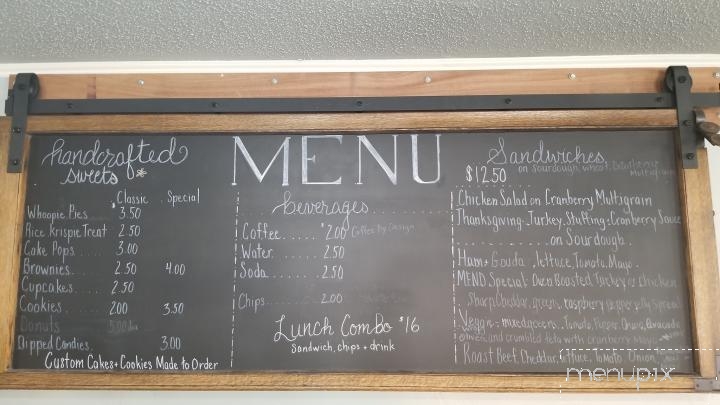 handcrafted
sweets
Classic Special
Whoopie Pies 3.50
Rice Krispie Treat 2.50
Cake Pops 3.00
Brownies 2.50 4.00
Cupcakes 2.50
Cookies 2.00 3.50
Donuts
Dipped Candies 3.00
Custom Cakes + Cookies Made to Order
MENU
beverages
Coffee $2.00 Coffee by Design
Water 2.50
Soda 2.50
Chips 2.00
Lunch Combo $16
Sandwich, chips + drink
Sandwiches
$12.50 on sourdough, wheat, Cranberry
multigrain
Chicken Salad on Cranberry Multigrain
Thanksgiving - Turkey, Stuffing + Cranberry Sauce
on Sourdough
Ham + Gouda lettuce, Tomato, Mayo
MEND Special Oven Roasted Turkey or Chicken
Sharp Cheddar, green, raspberry pepper jelly
Vegan - mixed greens, Tomato, Pepper, Onion, Avocado
and crumbled feta with cranberry Mayo
Roast Beef, Cheddar, lettuce, Tomato, Onion
menupix